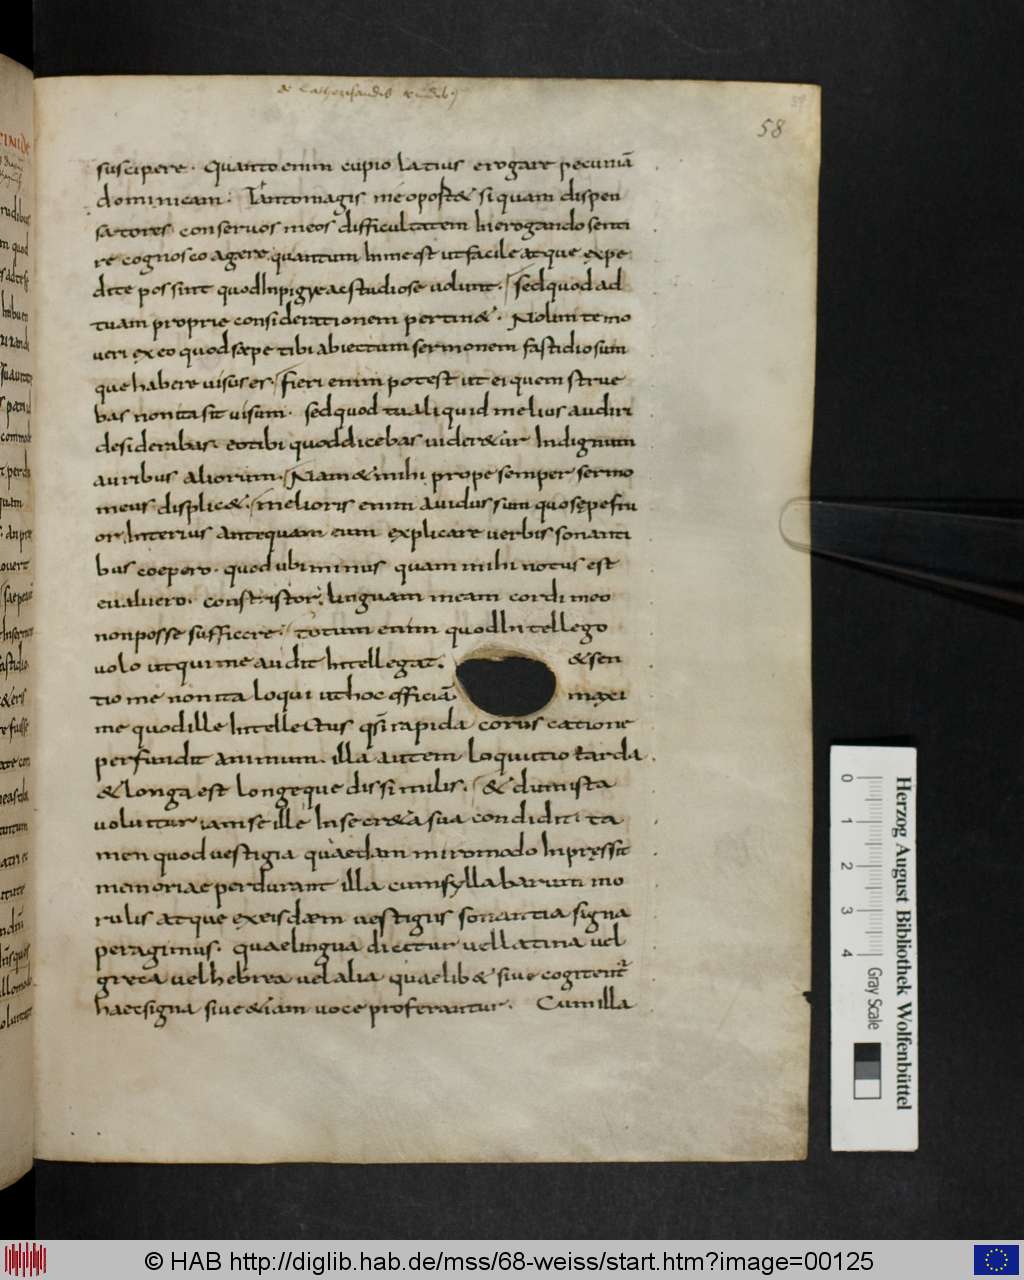 de Catherizandis rudib;
58
suscipere · Quanto enim cupio latius erogare pecuniā
dominicam · Tanto magis me oport& si quam dispen
satores conservos meos difficultatem in erogando senti
re cognosco agere quantum in me est ut facile atque expe
dite possint quod inpigre ac studiose volunt. Sed quod ad
tuam proprie considerationem pertin&. Nolim te mo
veri ex eo quod sæpe tibi abiectum sermonem fastidiosum
que habere visus es. Fieri enim potest ut ei quem strue
bas non ita sit visum. sed quod tu aliquid melius audiri
desiderabas. eo tibi quod dicebas vider&ur Indignum
auribus aliorum. Nam & mihi prope semper sermo
meus displic&. melioris enim avidus sum quo sepe fru
or Interius antequam eum explicare verbis sonanti
bus coepero. quod ubi minus quam mihi notus est
evaluero. constristor linguam meam cordi meo
non posse sufficere. totum enim quod Intellego
volo ut qui me audit Intellegat. & sen
tio me non ita loqui ut hoc efficiā. maxi
me quod ille Intellectus qsi rapida coruscatione
perfundit animum. illa autem loquutio tarda
& longa est longeque dissimilis. & dum ista
volvitur iam se ille In secr&a sua condidit. ta
men quod vestigia quaedam miro modo Inpressit
memoriae perdurant illa cum syllabarum mo
rulis atque ex eisdæm vestigiis sonantia signa
peragimus. quae lingua dicitur vel latina vel
greca vel hebrea vel alia quaelib& sive cogitent̄
haec signa sive &iam voce proferantur. Cum illa
Herzog August Bibliothek Wolfenbüttel
0 1 2 3 4 Gray Scale
© HAB http://diglib.hab.de/mss/68-weiss/start.htm?image=00125